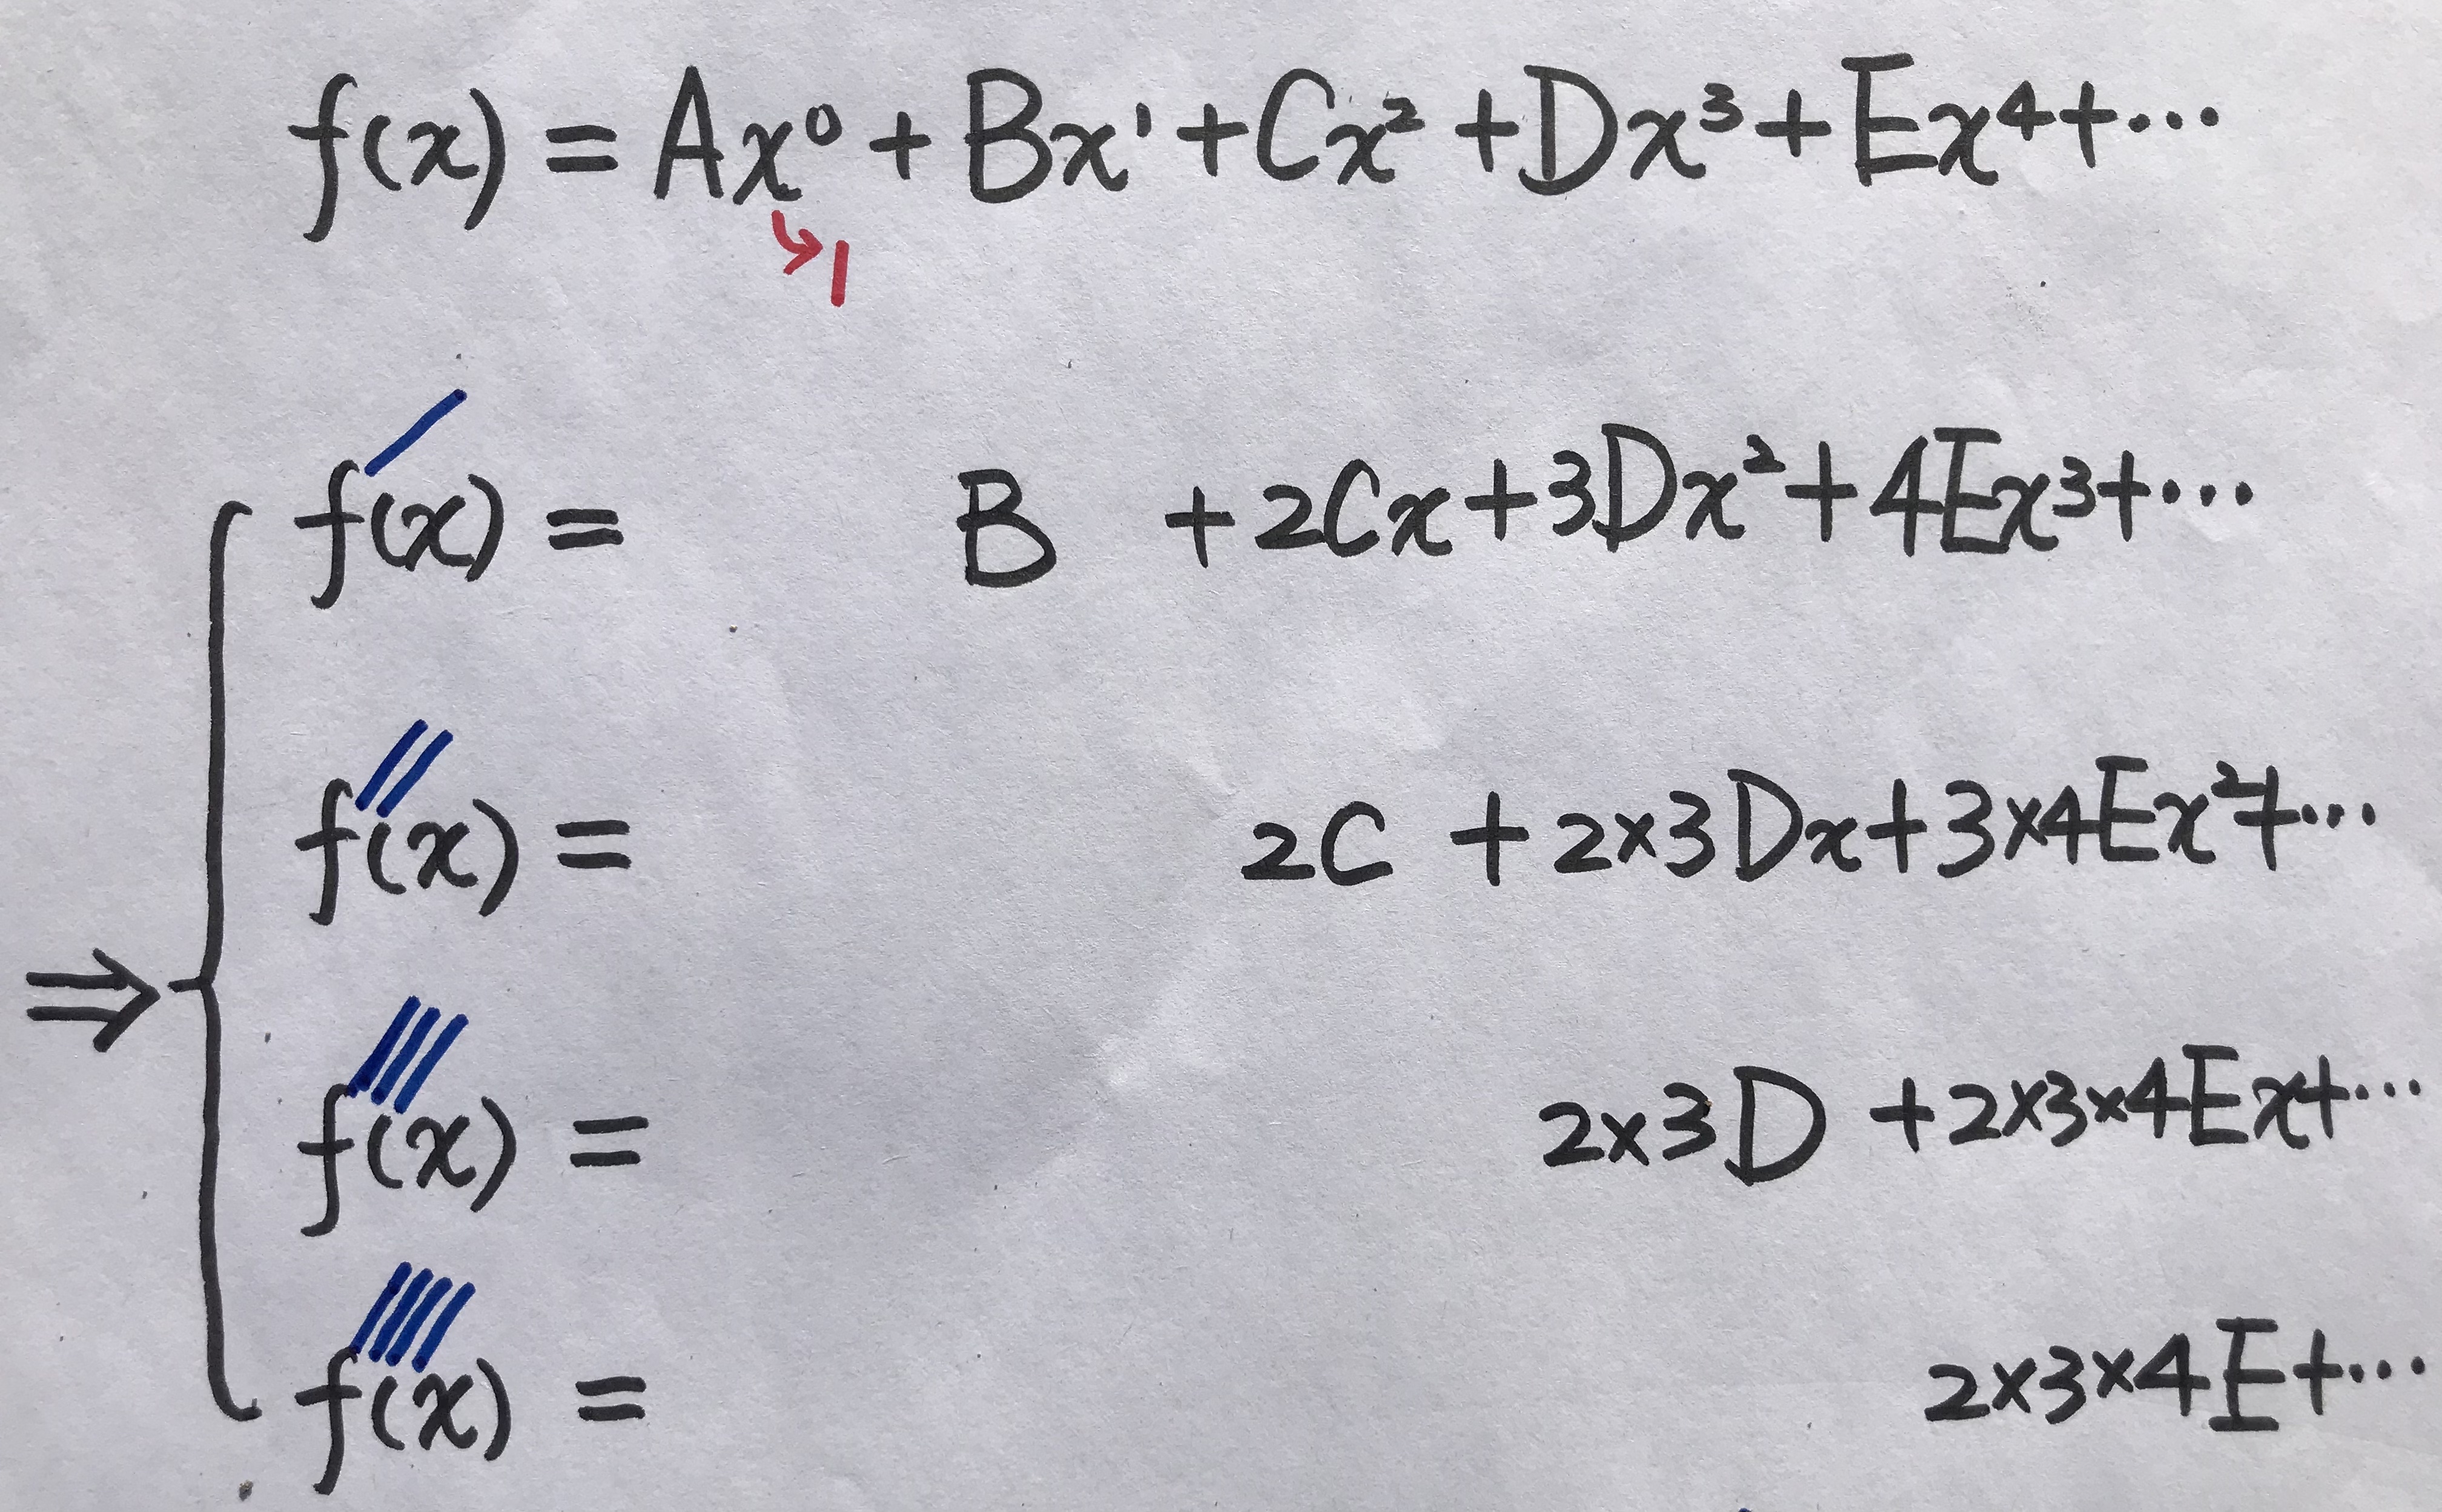 f(x) = Ax⁰ + Bx¹ + Cx² + Dx³ + Ex⁴ + ⋯
↳1
f′(x) = B + 2Cx + 3Dx² + 4Ex³ + ⋯
f″(x) = 2C + 2×3Dx + 3×4Ex² + ⋯
⇒ { f‴(x) = 2×3D + 2×3×4Ex + ⋯
f⁗(x) = 2×3×4E + ⋯